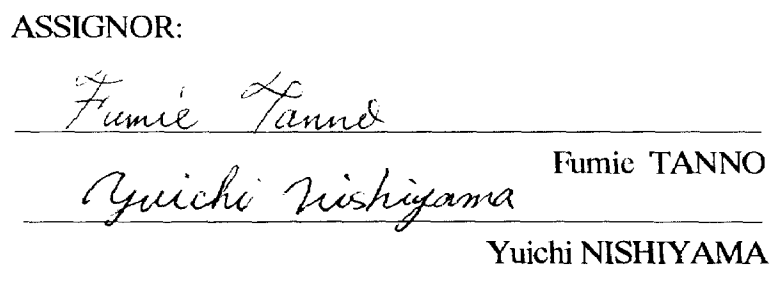 ASSIGNOR:
Fumie Tanno
Fumie TANNO
Yuichi Nishiyama
Yuichi NISHIYAMA